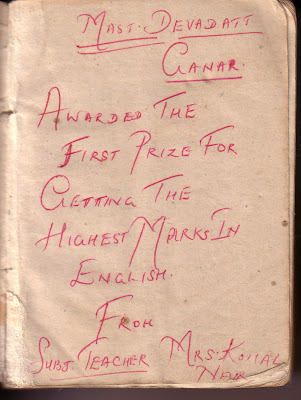 MAST. DEVADATT
GANAR.
AWARDED THE
FIRST PRIZE FOR
GETTING THE
HIGHEST MARKS IN
ENGLISH.
FROM
SUBJ. TEACHER MRS.